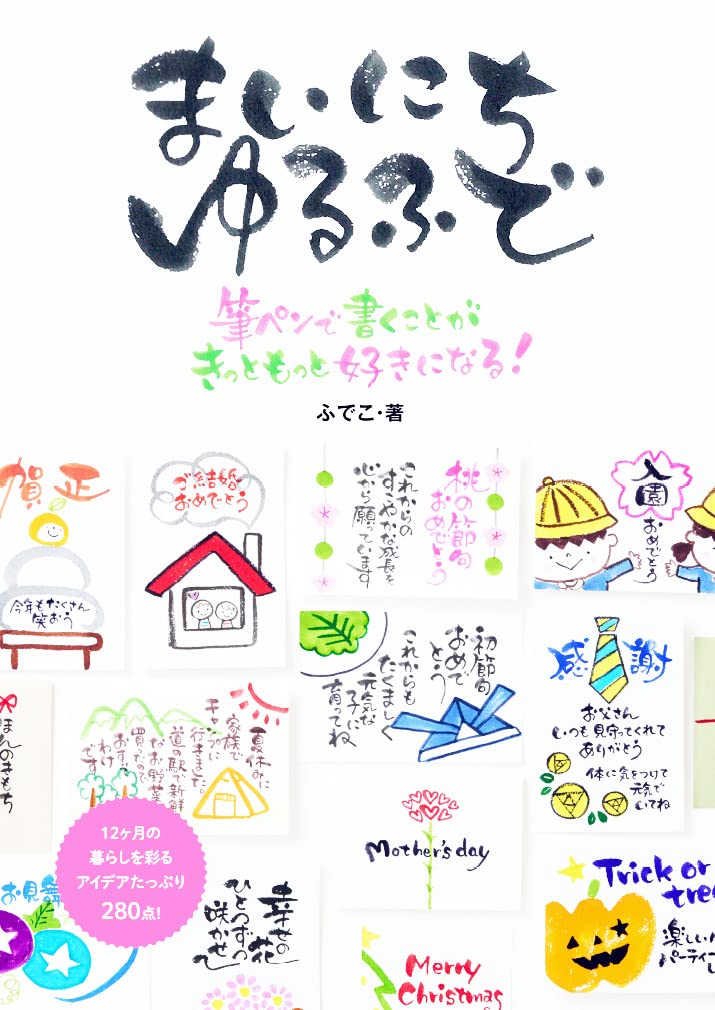 まいにち
ゆるふで
筆ペンで書くことが
きっともっと好きになる!
ふでこ・著
賀正
今年もたくさん
笑おう
ご結婚
おめでとう
桃の節句
おめでとう
これからの
すこやかな成長を
心から願っています
入園
おめでとう
初節句
おめで
とう
これからも
たくましく
元気な
子に
育ってね
感謝
お父さん
いつも見守ってくれて
ありがとう
体に気をつけて
元気で
いてね
ほんのきもち
夏休みに
家族で
キャンプに
行きました。
道の駅で新鮮
なお野菜
買ったので
おすそ
わけ
です
Mother's day
12ヶ月の
暮らしを彩る
アイデアたっぷり
280点!
お見舞
幸せの
花
ひとつずつ
咲かせて
Merry
Christmas
Trick or
tre
楽しい
パーティ